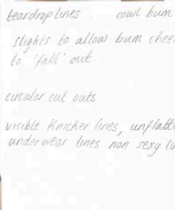 teardrop lines cowl bum
slights to allow bum chee
to 'fall' out.
circular cut outs
visible knicker lines, unflatt
underwear lines non sexy li